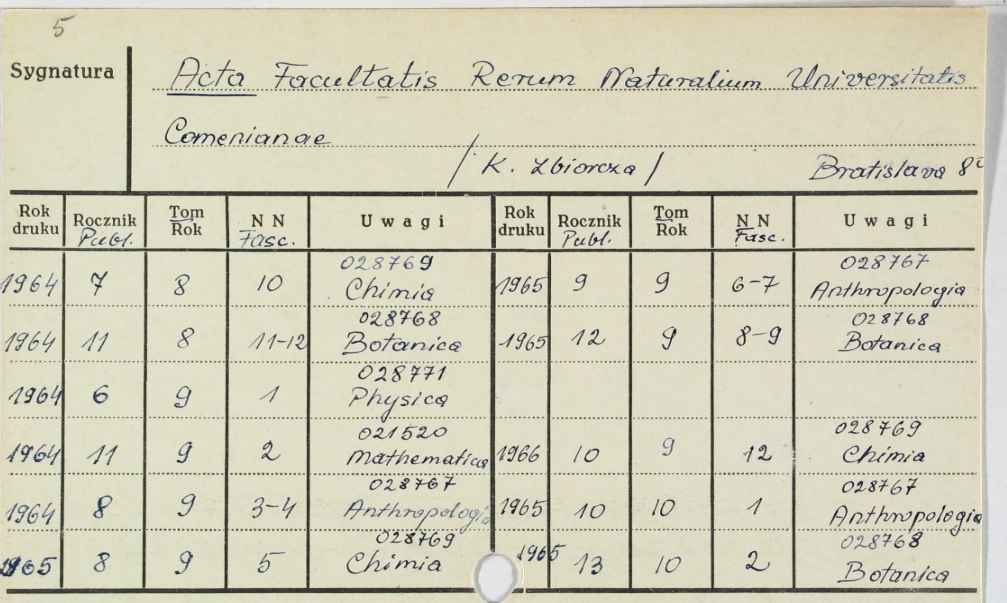 5
Sygnatura
Acta Facultatis Rerum Naturalium Universitatis
Comenianae
/ K. Zbiorcza / Bratislava 8°
Rok druku | Rocznik Publ. | Tom Rok | N N Fasc. | Uwagi | Rok druku | Rocznik Publ. | Tom Rok | N N Fasc. | Uwagi
1964 | 7 | 8 | 10 | 028769 Chimia | 1965 | 9 | 9 | 6-7 | 028767 Anthropologia
1964 | 11 | 8 | 11-12 | 028768 Botanica | 1965 | 12 | 9 | 8-9 | 028768 Botanica
1964 | 6 | 9 | 1 | 028771 Physica
1964 | 11 | 9 | 2 | 021520 Mathematica | 1966 | 10 | 9 | 12 | 028769 Chimia
1964 | 8 | 9 | 3-4 | 028767 Anthropologia | 1965 | 10 | 10 | 1 | 028767 Anthropologia
1965 | 8 | 9 | 5 | 028769 Chimia | 1965 | 13 | 10 | 2 | 028768 Botanica